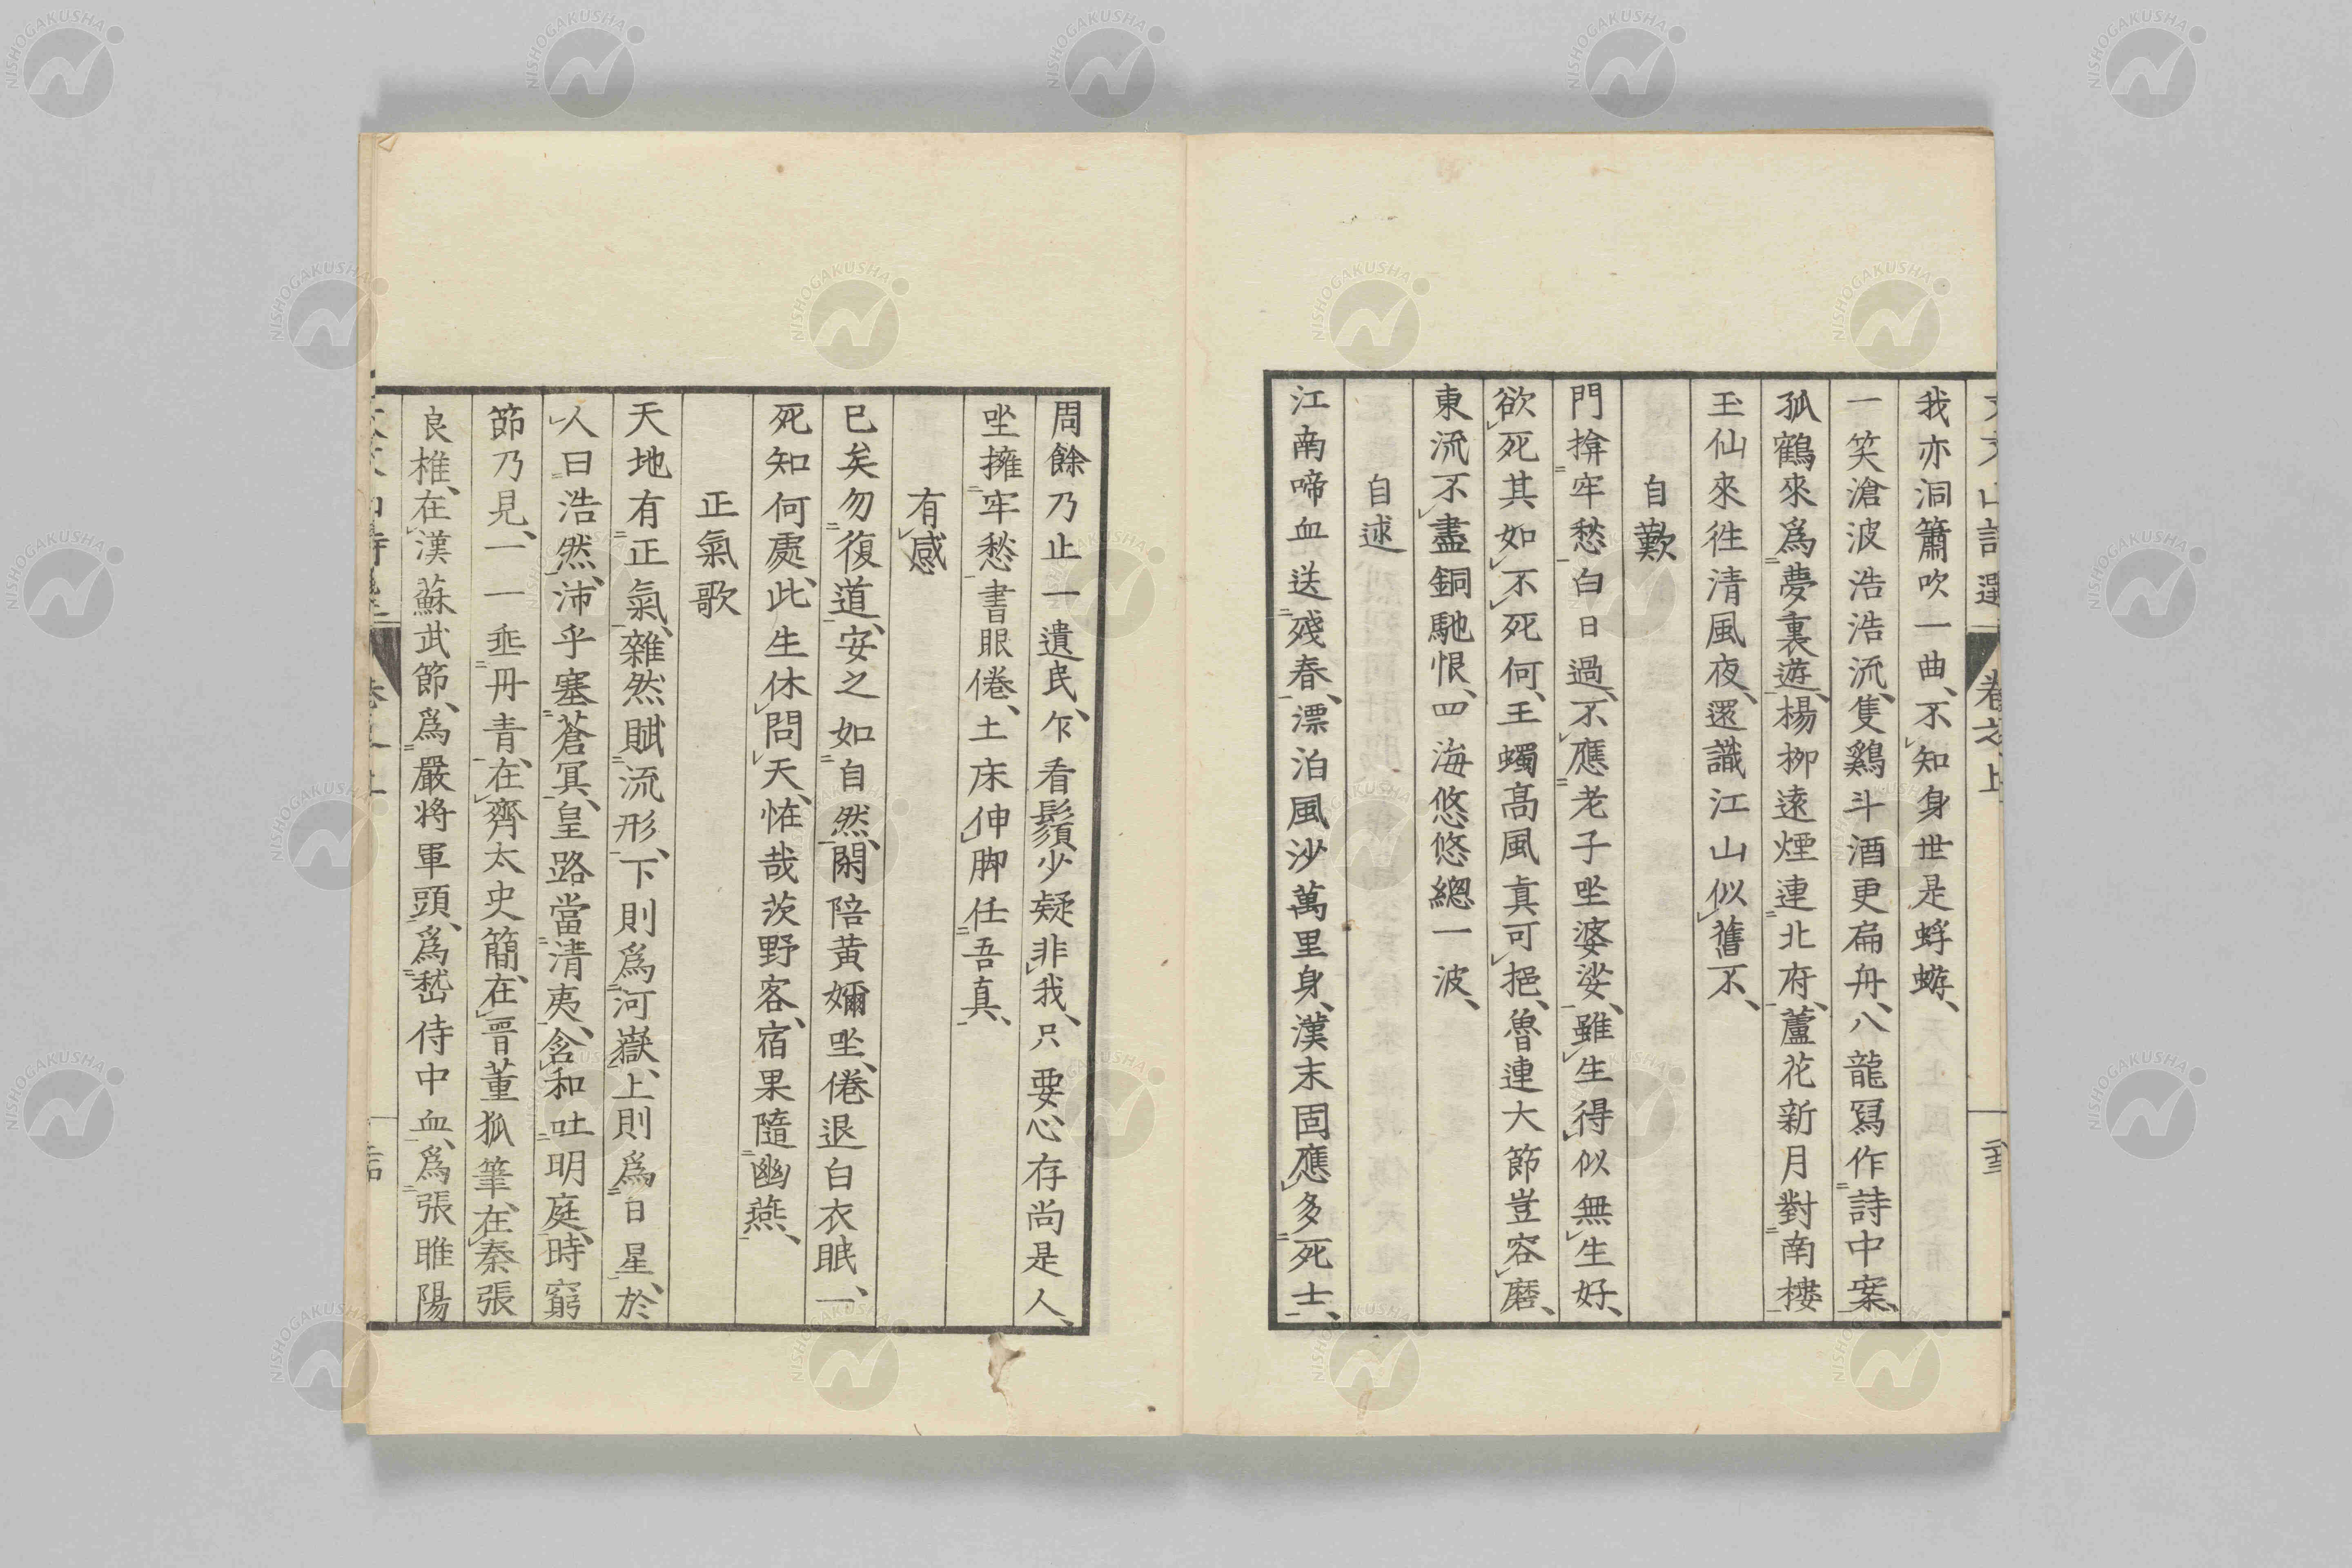 我亦洞簫吹一曲、不知身世是蜉蝣、
一笑滄波浩浩流、隻鷄斗酒更扁舟、八龍冩作詩中案、
孤鶴來爲夢裏遊、楊柳遠煙連北府、蘆花新月對南樓
玉仙來往清風夜、還識江山似舊不、
自歎
門揜牢愁白日過、不應老子坐婆娑、雖生得似無生好、
欲死其如不死何、王蠋髙風真可挹、魯連大節豈容磨、
東流不盡銅駞恨、四海悠悠總一波、
自述
江南啼血送殘春、漂泊風沙萬里身、漢末固應多死士、
周餘乃止一遺民、乍看鬚少疑非我、只要心存尚是人、
坐擁牢愁書眼倦、土床伸脚任吾真、
有感
已矣勿復道、安之如自然、閑陪黄嬭坐、倦退白衣眠、一
死知何處、此生休問天、恠哉茨野客、宿果隨幽燕、
正氣歌
天地有正氣、雜然賦流形、下則爲河嶽、上則爲日星、於
人曰浩然、沛乎塞蒼冥、皇路當清夷、含和吐明庭、時窮
節乃見、一一垂丹青、在齊太史簡、在晋董狐筆、在秦張
良椎、在漢蘇武節、爲嚴将軍頭、爲嵆侍中血、爲張睢陽
NISHOGAKUSHA